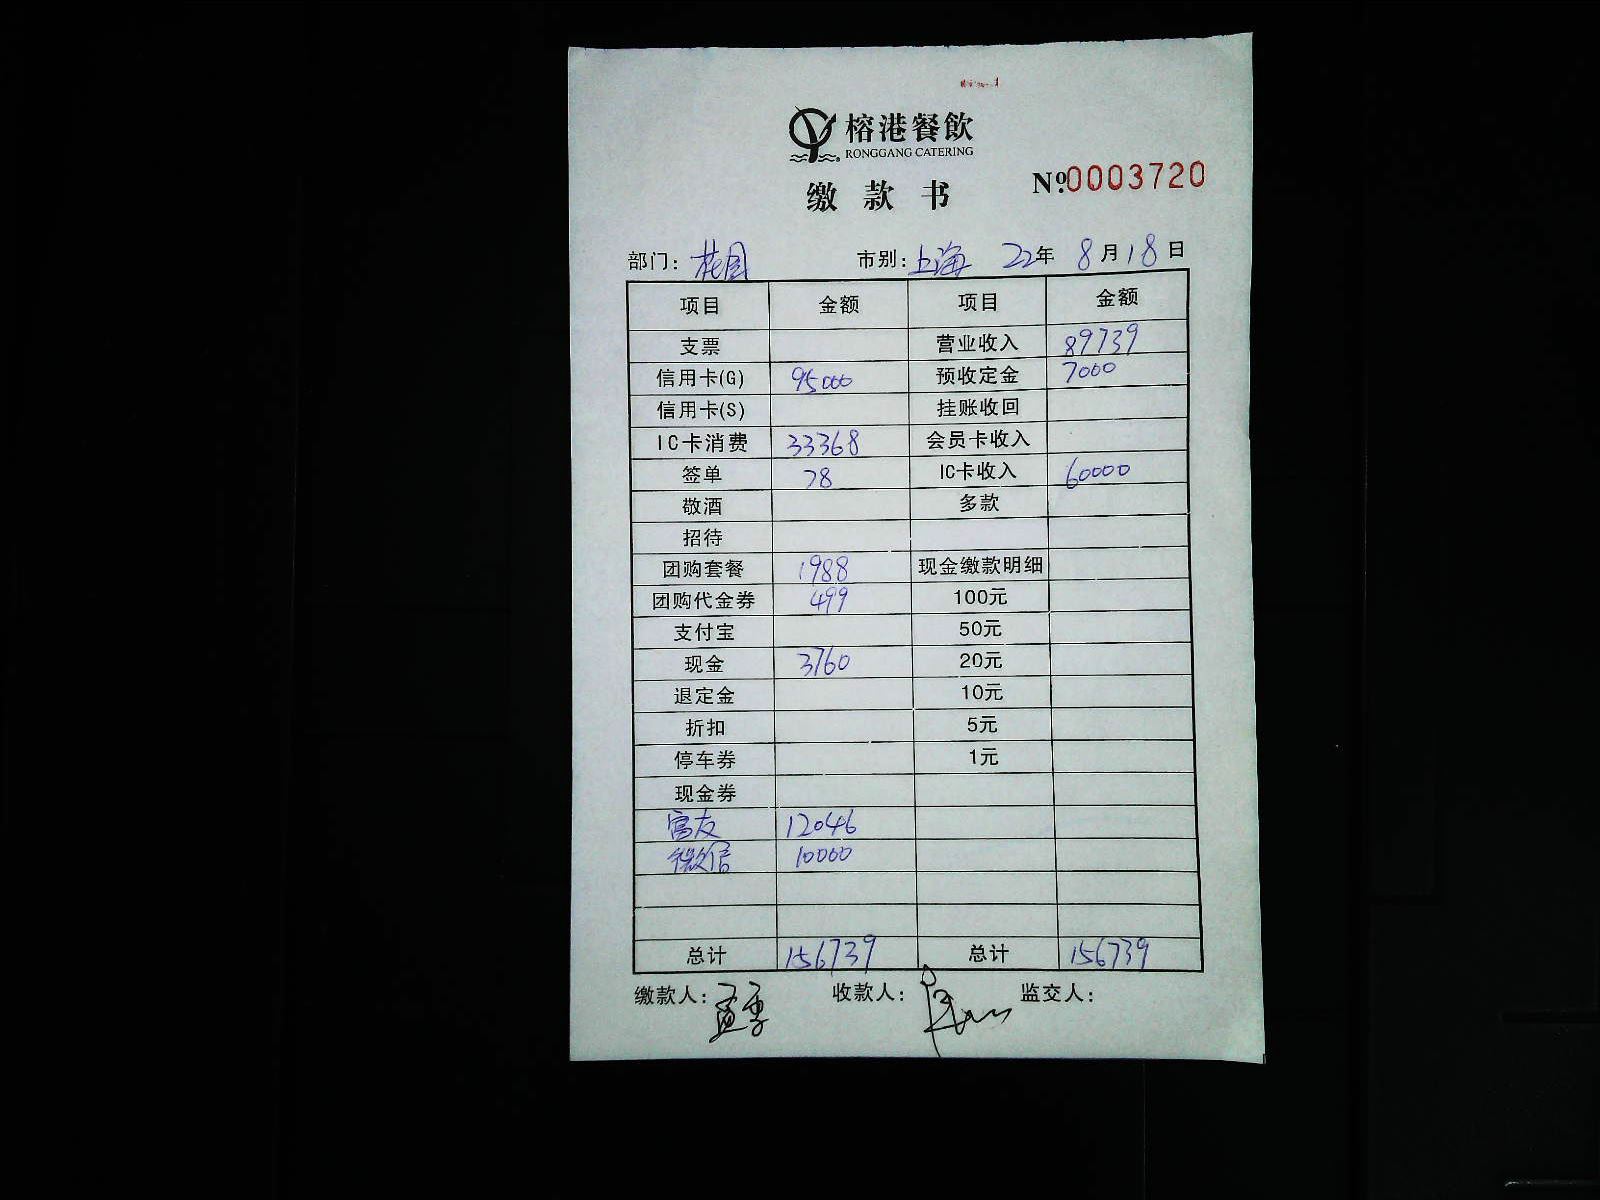 榕港餐飲
RONGGANG CATERING
缴款书
Nº.0003720
部门：花园 市别：上海 22年 8月18日
项目 金额 项目 金额
支票 营业收入 89739
信用卡(G) 95000 预收定金 7000
信用卡(S) 挂账收回
IC卡消费 33368 会员卡收入
签单 78 IC卡收入 60000
敬酒 多款
招待
团购套餐 1988 现金缴款明细
团购代金券 499 100元
支付宝 50元
现金 3760 20元
退定金 10元
折扣 5元
停车券 1元
现金券
富友 12046
微信 10000
总计 156739 总计 156739
缴款人： 收款人： 监交人：